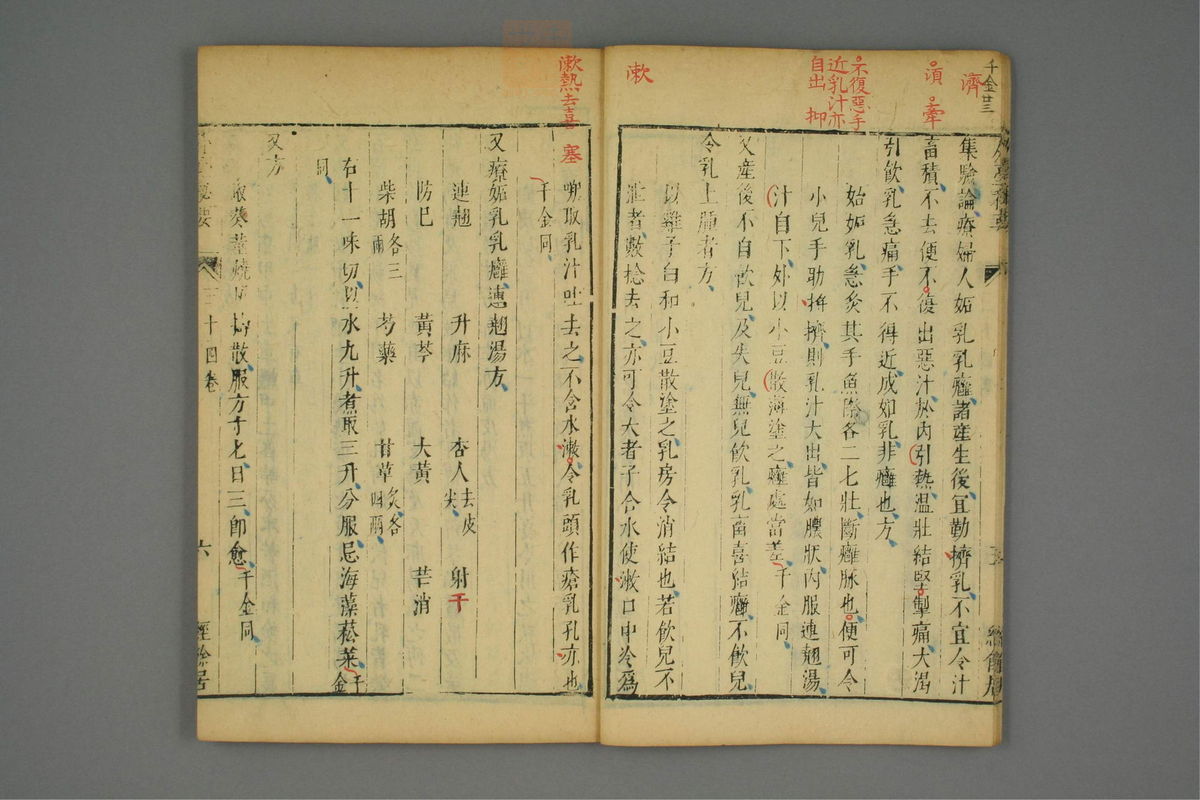 千金廿三
濟
湏 牽
不復惡手
近乳汁亦
自出 抑
漱
外臺秘要
集驗論療婦人妬乳乳癰諸產生後宜勤擠乳不宜令汁
畜積不去便不復出惡汁於內引熱溫壯結堅掣痛大渴
引飲乳急痛手不得近成妬乳非癰也方
始妬乳急灸其手魚際各二七壯斷癰脉也便可令
小兒手助捋擠則乳汁大出皆如膿狀內服連翹湯
汁自下外以小豆散薄塗之癰處當差千金同
又產後不自飲兒及失兒無兒飲乳乳蓄喜結癰不飲兒
令乳上腫者方
以雞子白和小豆散塗之乳房令消結也若飲兒不
泄者數捻去之亦可令大者子含水使漱口中冷為
五
經餘居
漱熱去喜 塞
嗍取乳汁吐去之不含水漱令乳頭作瘡乳孔亦也
千金同
又療妬乳乳癰連翹湯方
連翹 升麻 杏人去皮尖 射干
防巳 黃芩 大黃 芒消
柴胡各三兩 芍藥 甘草炙各四兩
右十一味切以水九升煮取三升分服忌海藻菘菜千金
同
又方
取葵莖燒灰擣散服方寸七日三即愈千金同
三十四卷
六
經餘居